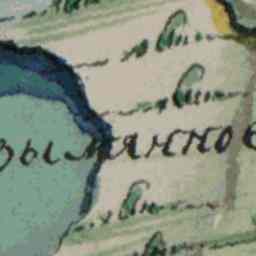 зымянное